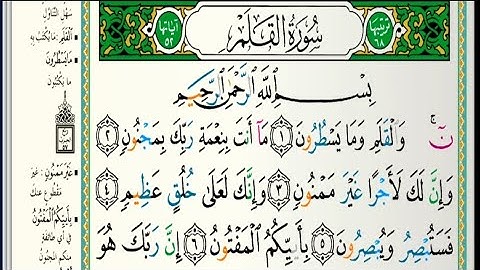 ترتيبها ٦٨
سُورَةُ القَلَمِ
آياتها ٥٢
بِسْمِ اللَّهِ الرَّحْمَٰنِ الرَّحِيمِ
نٓ ۚ وَالْقَلَمِ وَمَا يَسْطُرُونَ ﴿١﴾ مَا أَنتَ بِنِعْمَةِ رَبِّكَ بِمَجْنُونٍ ﴿٢﴾
وَإِنَّ لَكَ لَأَجْرًا غَيْرَ مَمْنُونٍ ﴿٣﴾ وَإِنَّكَ لَعَلَىٰ خُلُقٍ عَظِيمٍ ﴿٤﴾
فَسَتُبْصِرُ وَيُبْصِرُونَ ﴿٥﴾ بِأَييِّكُمُ الْمَفْتُونُ ﴿٦﴾ إِنَّ رَبَّكَ هُوَ
الْقَلَمِ: مَا يُكْتَبُ بِهِ
مَا يَسْطُرُونَ
مَا يَكْتُبُونَ
غَيْرَ مَمْنُونٍ: غَيْرَ
مَقْطُوعٍ عَنْكَ
بِأَييِّكُمُ الْمَفْتُونُ
فِي أَيِّ طَائِفَةٍ
مِنْكُمُ الْمَجْنُونُ